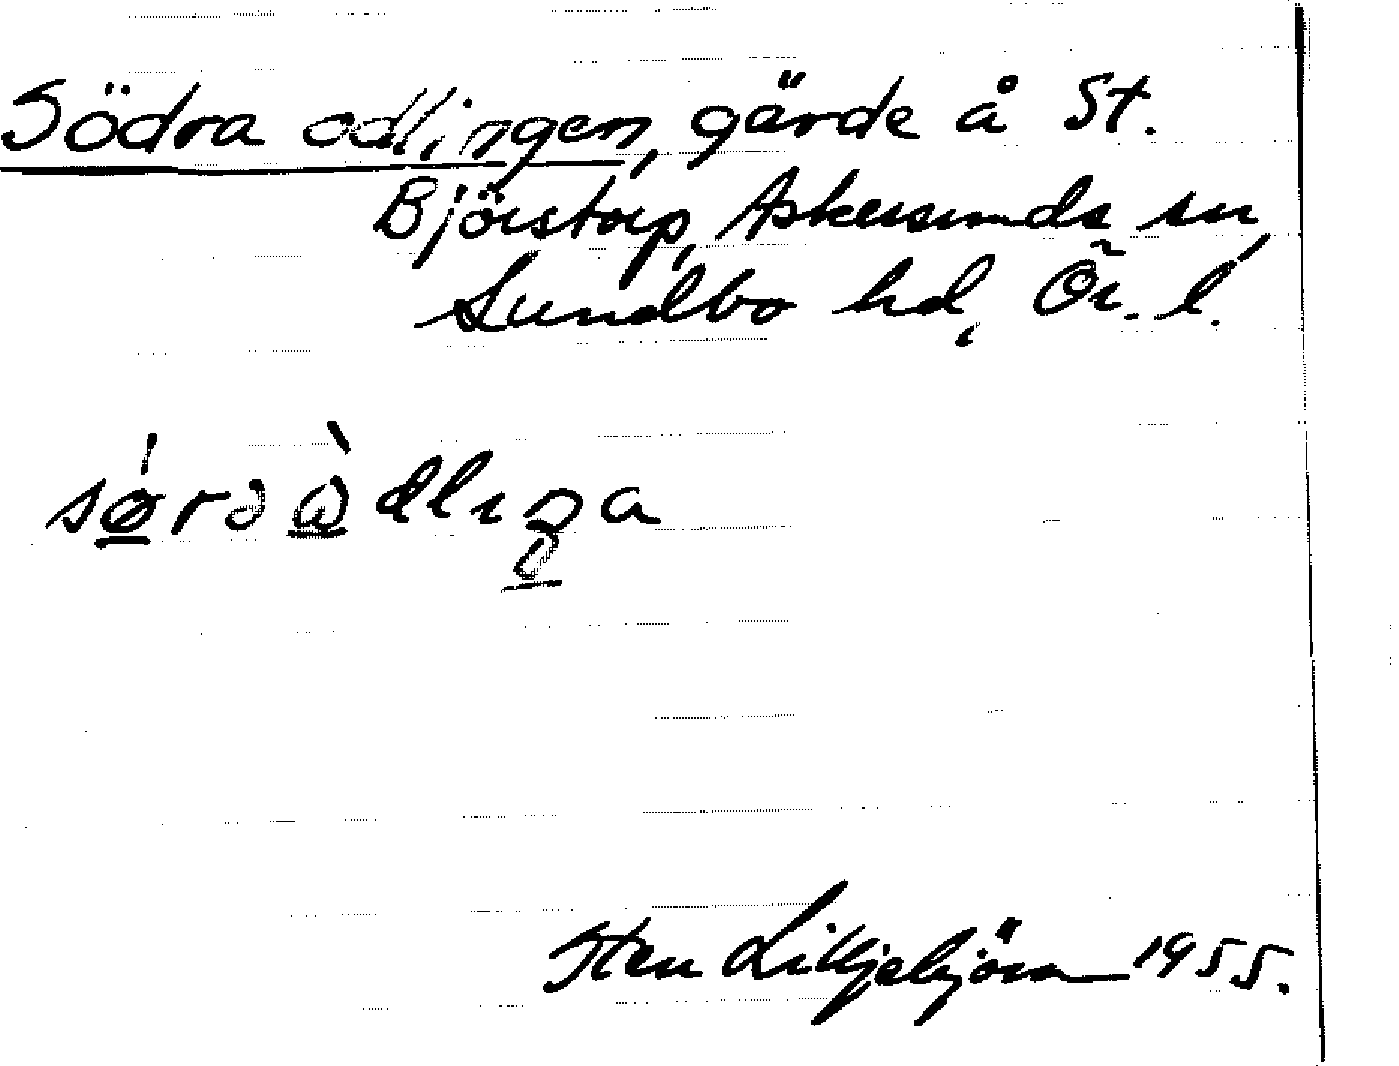 Södra odlingen, gärde å St.
Björstorp, Askersunds sn,
Sundbo hd, Ör. l.
Sten Lilljebjörn 1955.